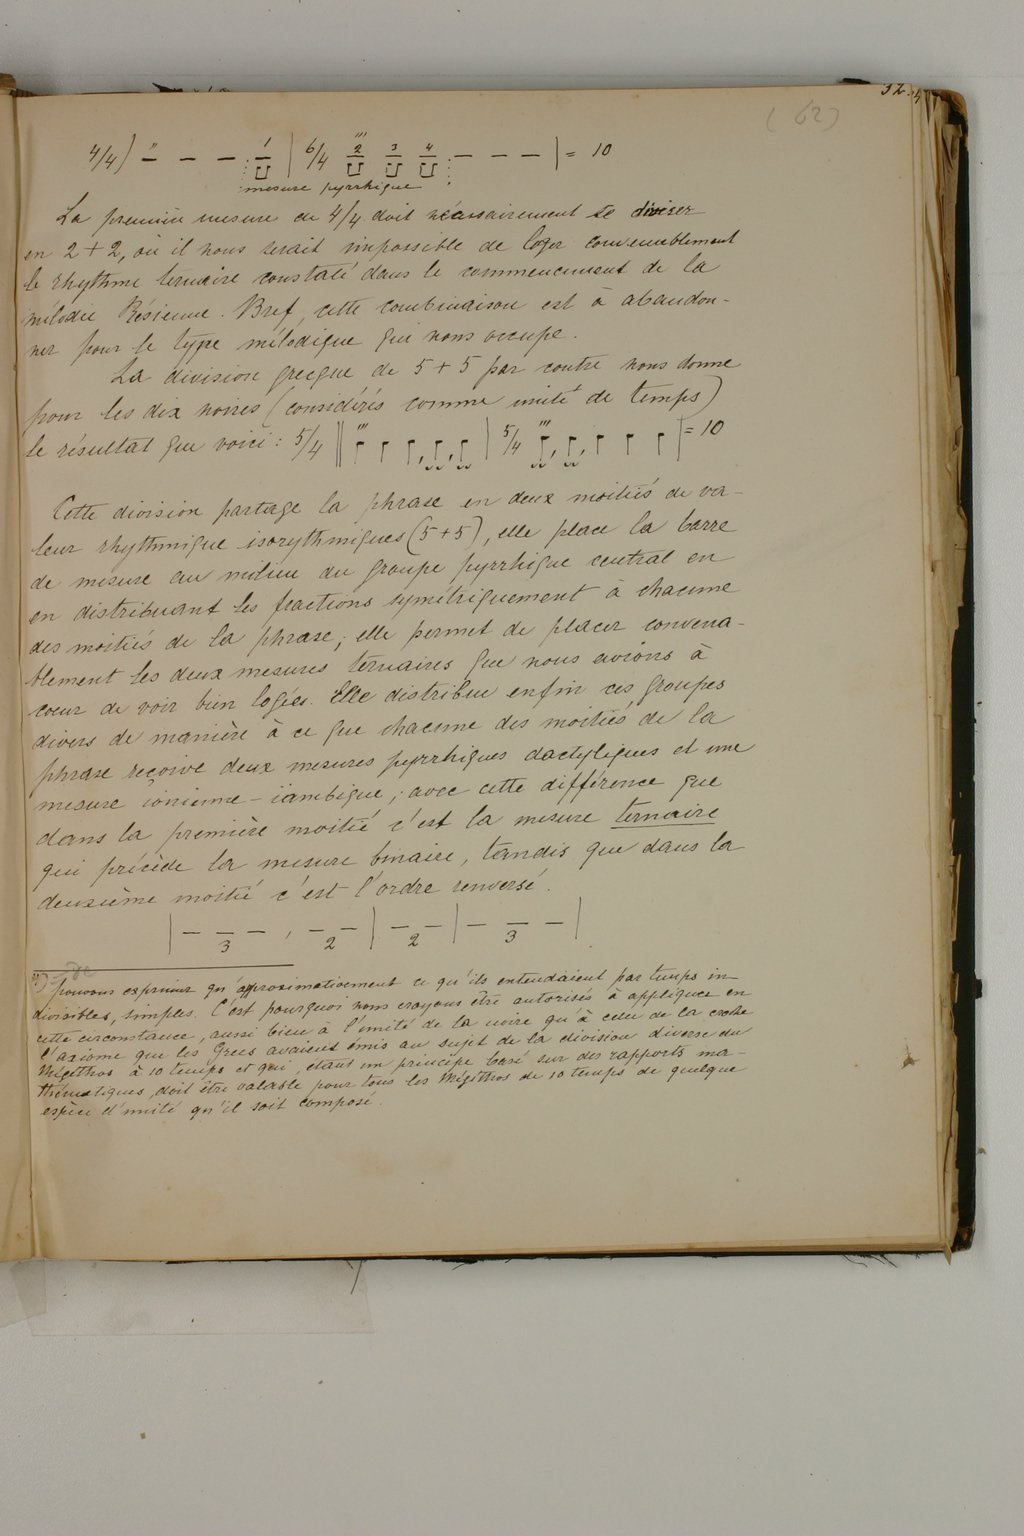 (62)
4/4) – – – 1 | 6/4 2 3 4 – – – | = 10
mesure pyrrhique
La première mesure de 4/4 doit nécessairement se diviser
en 2 + 2, où il nous serait impossible de loger convenablement
le rhythme ternaire constaté dans le commencement de la
mélodie Résienne. Bref, cette combinaison est à abandon-
ner pour le type mélodique qui nous occupe.
La division grecque de 5 + 5 par contre nous donne
pour les dix noires (considérés comme unité de temps)
le résultat que voici: 5/4 || | 5/4 | = 10
Cette division partage la phrase en deux moitiés de va-
leur rhythmique isorythmiques (5 + 5), elle place la barre
de mesure au milieu du groupe pyrrhique central en
en distribuant les fractions symétriquement à chacune
des moitiés de la phrase; elle permet de placer convena-
blement les deux mesures ternaires que nous avions à
coeur de voir bien logées. Elle distribue enfin ces groupes
divers de manière à ce que chacune des moitiés de la
phrase reçoive deux mesures pyrrhiques dactyliques et une
mesure ïonienne-ïambique; avec cette différence que
dans la première moitié c'est la mesure ternaire
qui précède la mesure binaire, tandis que dans la
deuxième moitié c'est l'ordre renversé.
| – – – , – – | – – | – – – |
3 2 2 3
pouvons exprimer qu'approximativement ce qu'ils entendaient par temps in-
divisibles, simples. C'est pourquoi nous croyons être autorisés à appliquer en
cette circonstance, aussi bien à l'unité de la noire qu'à celle de la croche
l'axiome que les Grecs avaient émis au sujet de la division diverse du
Mégéthos à 10 temps et qui, étant un principe basé sur des rapports ma-
thématiques, doit être valable pour tous les Mégéthos de 10 temps de quelque
espèce d'unité qu'il soit composé.